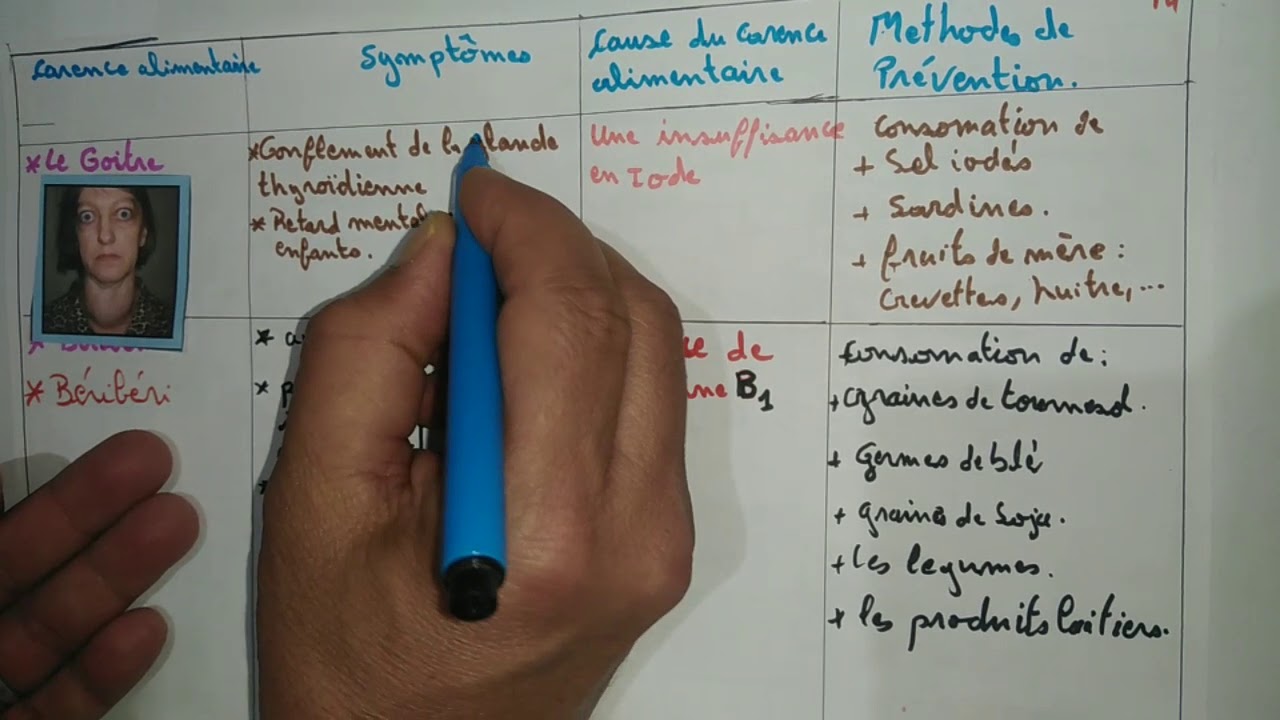 Carence alimentaire
Symptômes
Cause du Carence
alimentaire
Methodes de
Prévention.
*Le Goitre
*Gonflement de la glande
thyroïdienne
* Retard mental
enfants.
Une insuffisance
en Iode
Consomation de
+ Sel iodés
+ Sardines.
+ fruits de mère :
Crevettes, huitre, ...
* Béribéri
de
B1
Consomation de :
+ graines de tournesol.
+ Germes de blé
+ graine de Soja.
+ Les legumes.
+ les produits laitiers.